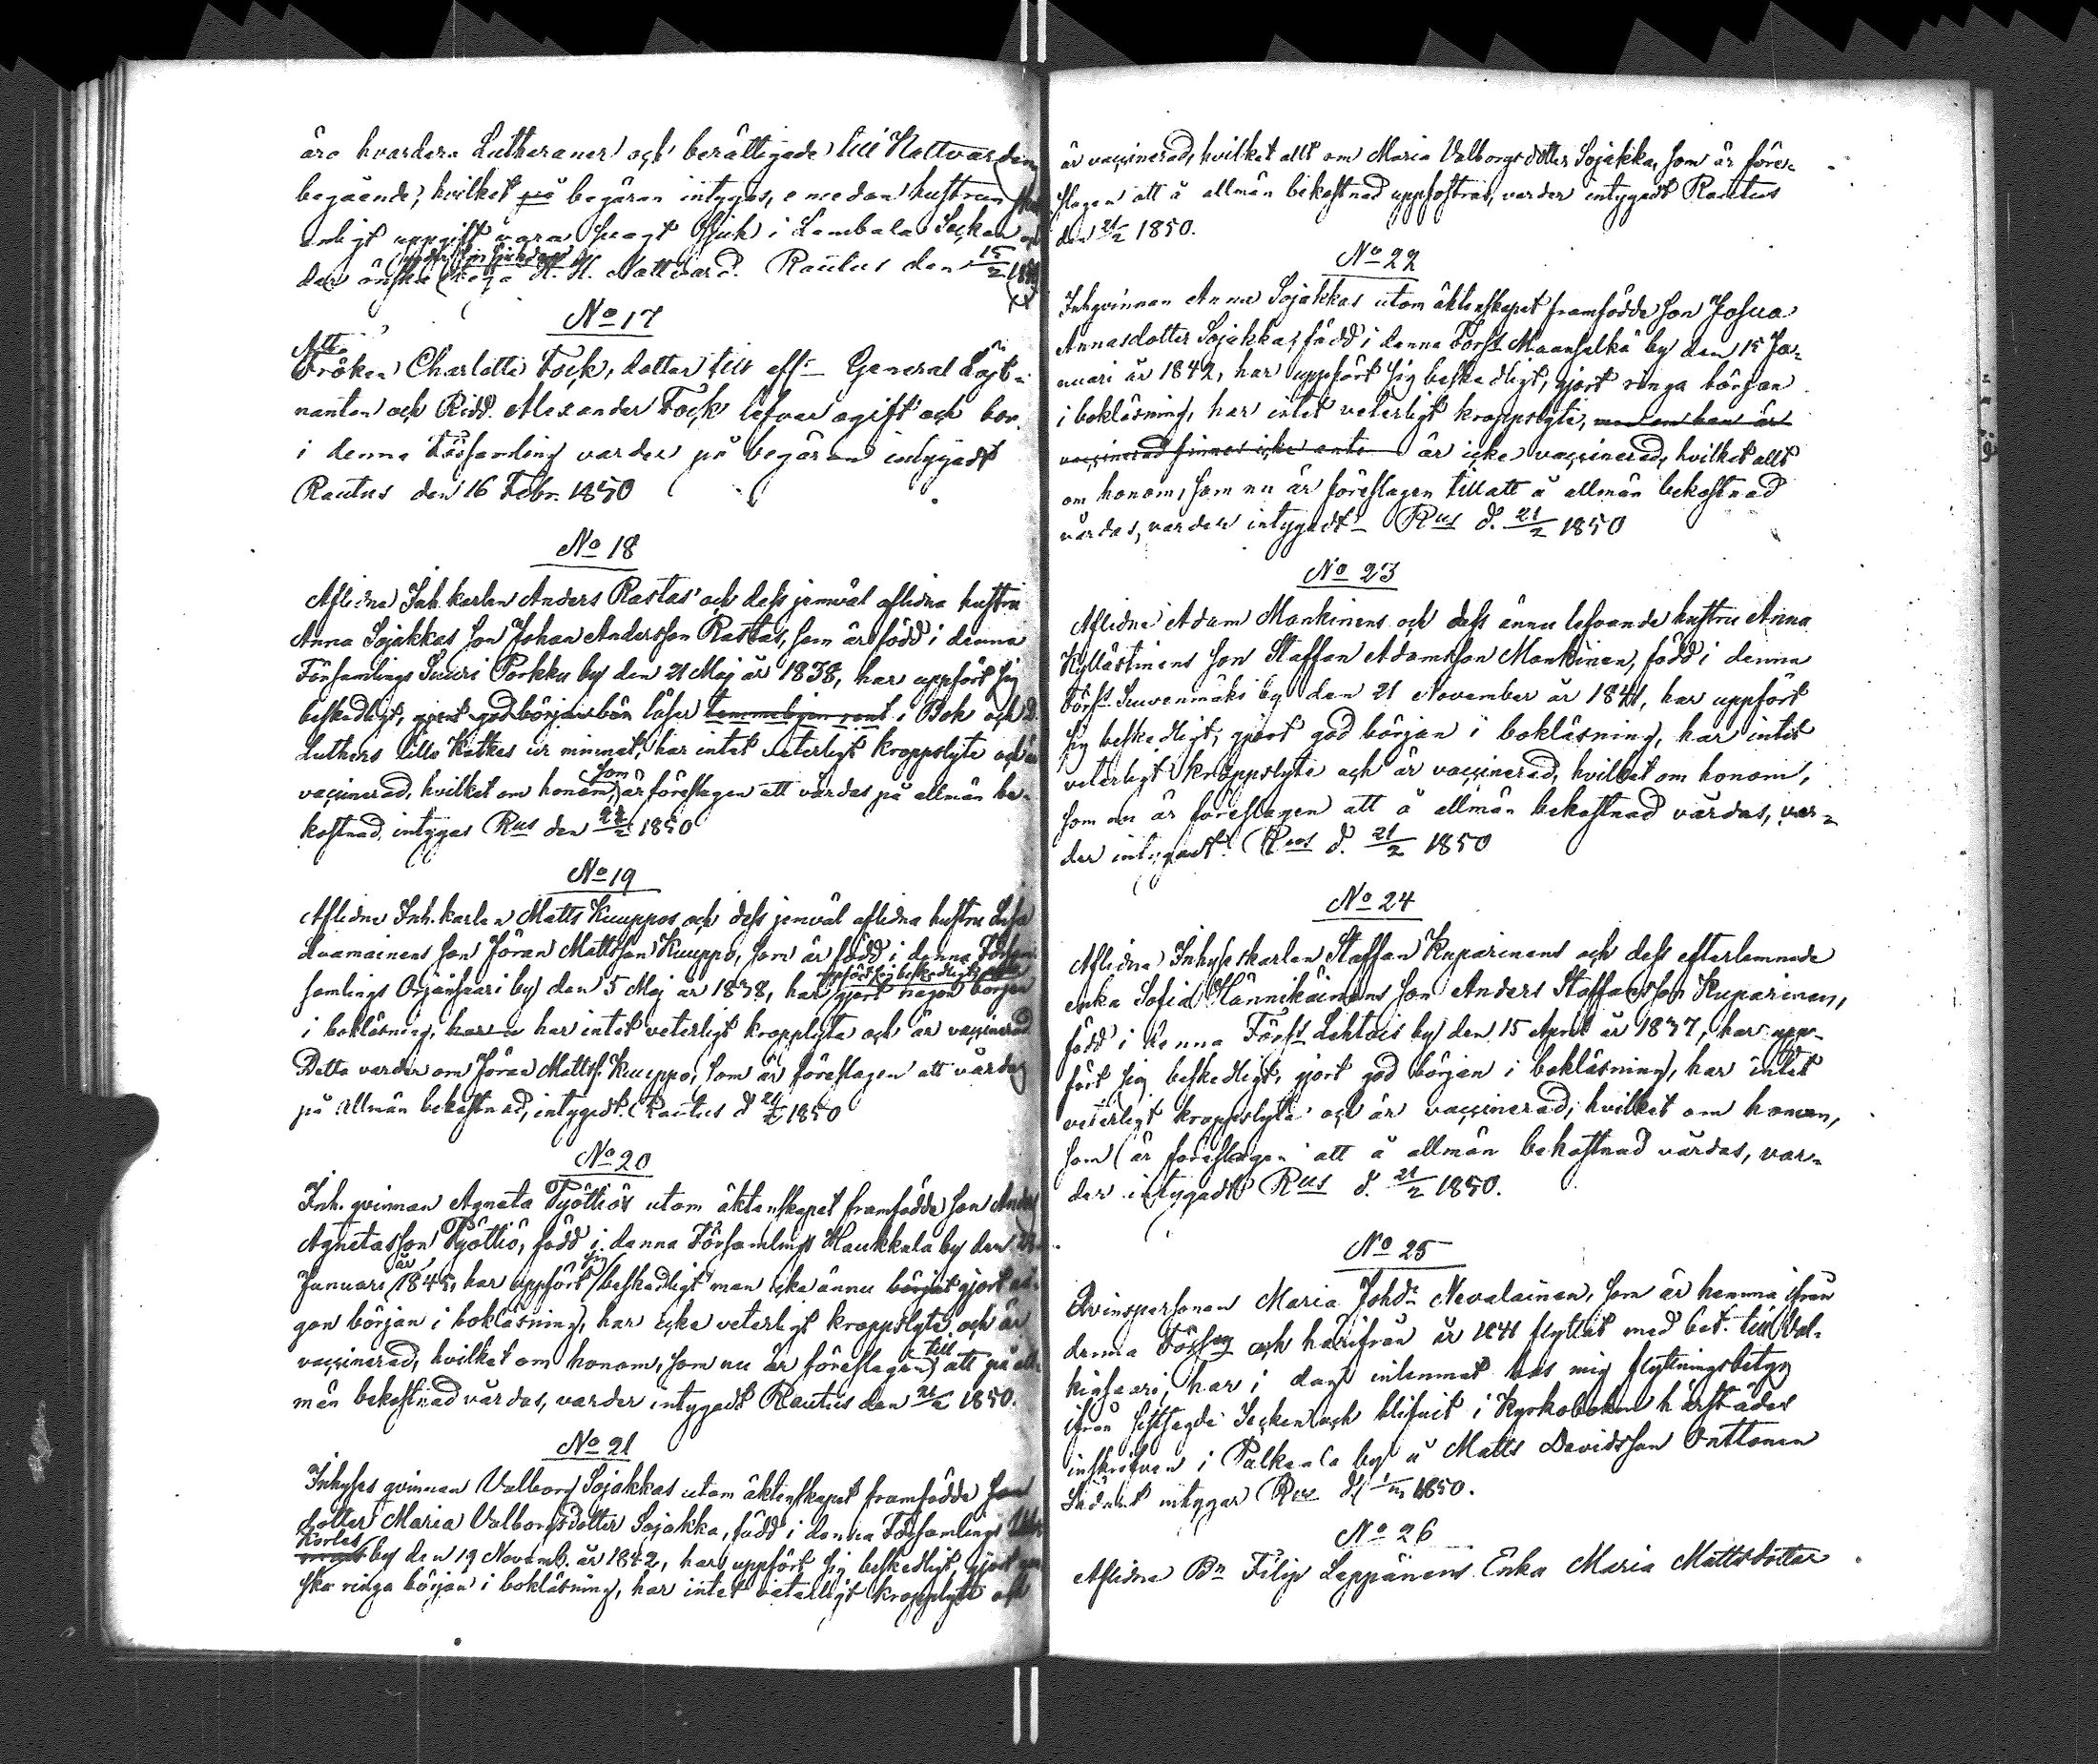 äro hvardera Lutheraner och berättigade till Nattvarden
begående; hvilket på begäran intygas, emedan hustrun
enligt uppgift vara svagt sjuk i Lembala Socken och
der önska under sin sjukdom H. H. Nattvard. Rautus den 15/2 1850
No 17
Att
Fröken Charlotta Fock, dotter till aff. General Löjt-
nanten och Ridd. Alexander Fock lefver ogift och bor
i denna Församling varder på begäran intygadt
Rautus den 16 Febr. 1850
No 18
Aflidne Inh. karlen Anders Rastas och dess jemväl aflidna hustru
Anna Sojakkas son Johan Andersson Rastas, som är född i denna
Församlings Suuri Porkku by den 21 Maj år 1838, har uppfört sig
beskedligt, gjort god början bön läser temmeligen rent i Bok och D.
Luthers lilla Katkes ur minnet, har intet veterligt kroppslyte och är
vaccinerad, hvilket om honom, som är föreslagen att vårdas på allmän be-
kostnad, intygas Rus den 21/2 1850
No 19
Aflidne Inh. karlen Matts Kuuppos och dess jemväl aflidna hustru Lisa
Luamainens son Jöran Mattsson Kuuppo, som är född i denna För-
samlings Orjansaari by den 5 Maj år 1838, har uppfört sig beskedligt, gjort någon början
i bokläsning, har intet veterligt kroppslyte och är vaccinerad
Detta varder om Jöran Mattss. Kuuppo, som är föreslagen att vårdas
på allmän bekostnad, intygadt. Rautus d 21/2 1850
No 20
Inh. qvinnan Agneta Pyöttiös utom äktenskapet framfödde son Anders
Agnetasson Pyöttiö, född i denna Församlings Haukkala by den
Januari år 1845, har uppfört sig beskedligt men icke ännu börjat gjort nå-
gon början i bokläsning, har icke veterligt kroppslyte och är
vaccinerad, hvilket om honom, som nu är föreslagen till att på all-
män bekostnad vårdas, varder intygadt Rautus den 21/2 1850.
No 21
Inhyses qvinnan Valborg Sojakkas utom äktenskapet framfödde son
dotter Maria Valborgsdotter Sojakka, född i denna Församlings
Kortes by den 19 Novemb. år 1842, har uppfört sig beskedligt, gjort gan-
ska ringa början i bokläsning, har intet veterligt kroppslyte och
är vaccinerad, hvilket allt om Maria Valborgsdotter Sojakka, som är före-
slagen att å allmän bekostnad uppfostras, varder intygadt Rautus
den 21/2 1850.
No 22
Inh.qvinnan Anna Sojakkas utom äktenskapet framfödde son Josua
Annasdotter Sojakka, född i denna Förs:s Maanselkä by den 15 Ja-
nuari år 1842, har uppfört sig beskedligt, gjort ringa början
i bokläsning, har intet veterligt kroppslyte, men om han är
vaccinerad finnes icke ante är icke vaccinerad, hvilket allt
om honom, som nu är föreslagen till att å allmän bekostnad
vårdas, varder intygadt. Rus d. 21/2 1850
No 23
Aflidne Adam Mankinens och dess ännu lefvande hustru Anna
Kyllästinens son Staffan Adamsson Mankinen, född i denna
Förs:s Suvenmäki by den 21 November år 1841, har uppfört
sig beskedligt, gjort god början i bokläsning, har intet
veterligt kroppslyte och är vaccinerad, hvilket om honom,
som nu är föreslagen att å allmän bekostnad vårdas, var-
der intygadt. Rus d. 21/2 1850
No 24
Aflidne Inhyseskarlen Staffan Kuparinens och dess efterlemnade
enka Sofia Hännikäinens son Anders Staffansson Kuparinen,
född i denna Förs:s Lehtois by den 15 April år 1837, har upp-
fört sig beskedligt, gjort god början i bokläsning, har intet
veterligt kroppslyte och är vaccinerad, hvilket om honom,
som är föreslagen att å allmän bekostnad vårdas, var-
der intygadt Rus d. 21/2 1850.
No 25
Qvinspersonen Maria Johdr Nevalainen, som är hemma ifrån
denna Förs:ng och härifrån år 1841 flyttat med bet. till Val-
kiasaari, har i dag inlemnat hos mig flyttningsbetyg
ifrån sistsagde Socken och blifvit i Kyrkoboken härstädes
inskrifven i Palkeala by å Matts Davidsson Onttonen
Sådant intygar Rus d. 1/m 1850.
No 26
Aflidne Bn Filip Leppänens Enka Maria Mattsdotter